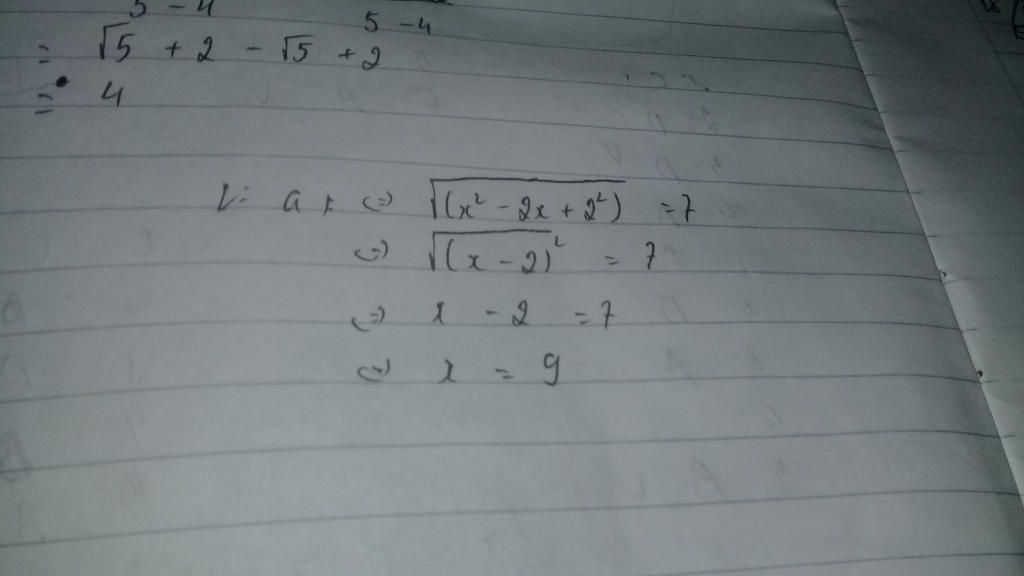 5 - 4 5 - 4
= √5 + 2 - √5 + 2
= 4
a, <=> √(x² - 2x + 2²) = 7
<=> √(x - 2)² = 7
<=> x - 2 = 7
<=> x = 9